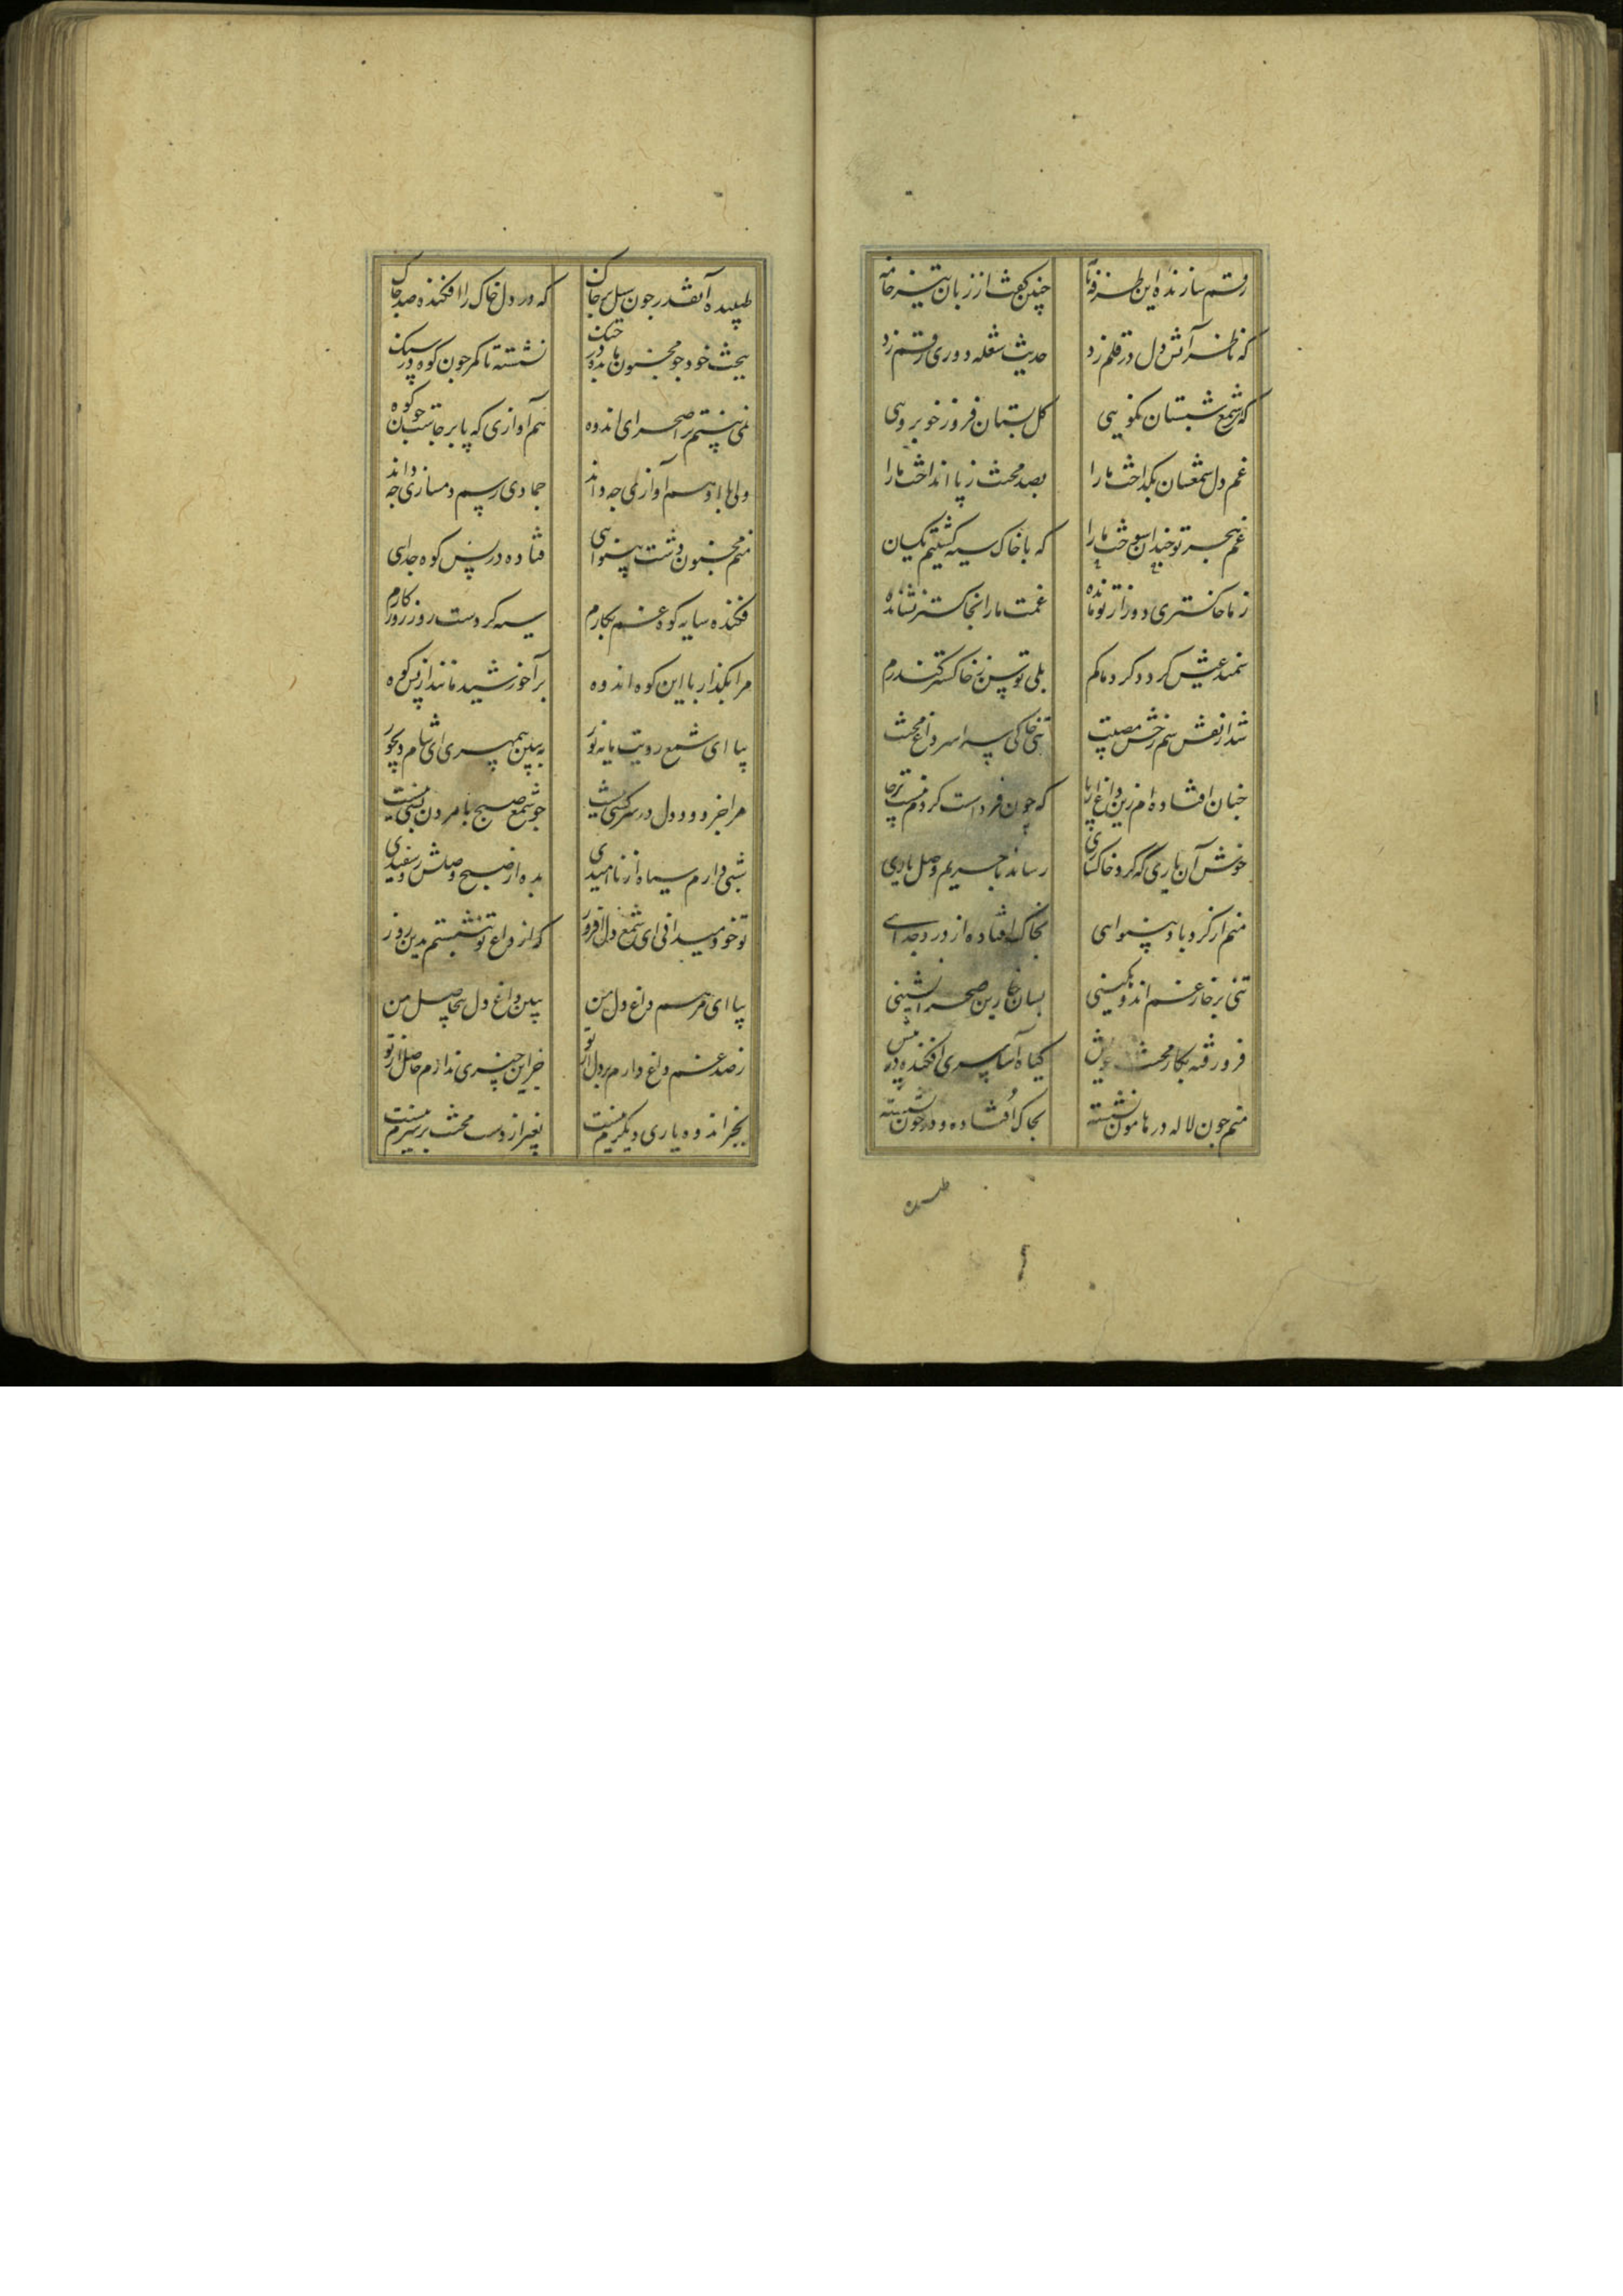 رقم سازنده این طرفه نامه چنین گفت از زبان تیز خامه
که ناظر آتش دل در قلم زد حدیث شعله دوری رقم زد
که شمع شبستان نکویی کل بستان فروز خوبرویی
غم دل شمعسان بکداخت ما را بصد محنت ز پا انداخت ما را
غم هجر تو چندان سوخت ما را که با خاک سیه کشتیم یکسان
ز ما خاکستری دور از تو مانده غمت ما را بخاکستر نشانده
سمند عیش کردد کرد ما کم بلی توسن ز خاکستر کند رم
شد از نقش سم رخش مصیبت تن خاکی سراسر داغ محنت
چنان افتاده ام زین داغ از پا که چون فرداست کردم نیست بر جا
خوش آن یاری که کرد خاکساری رساند با حریم وصل یاری
منم از کرد باد بینوایی بخاک افتاده از درد جدایی
تنی بر خار غم اندوهکینی بسان خاربن صحرانشینی
فرو رفته بکار محنت خویش کیاه آسا سری افکنده در پیش
منم چون لاله در هامون نشسته بخاک افتاده و در خون نشسته
طپیده
طپیده آنقدر چون سیل بر خاک که در دل خاک را افکنده صد چاک
ببحث خود چو مجنون مانده در جنک نشسته تا کمر چون کوه در سنک
نمی بینم در صحرای اندوه هم آوازی که پا بر جاست جز کوه
ولی با او هم آوازی چه داند جمادی رسم دمسازی چه داند
منم مجنون دشت بینوایی فتاده در پس کوه جدایی
فکنده سایه کوه غم بکارم سیه کردست روز روزکارم
مرا بکذار با این کوه اندوه بر آ خورشید مانند از پس کوه
بیا ای شمع رویت مایه نور ببین بیمهری ای شام دیجور
مرا جز دود دل در سر کسی نیست چو شمع صبح تا مردن بسی نیست
شبی دارم سیاه از ناامیدی بده از صبح وصلش رو سفیدی
تو خود میدانی ای شمع دل افروز که از داغ تو بنشستم بدین روز
بیا ای مرهم داغ دل من ببین داغ دل بیحاصل من
ز صد غم داغ دارم بر دل از تو جز این چیزی ندارم حاصل از تو
بجز اندوه یاری دیکرم نیست بغیر از دست محنت بر سرم نیست